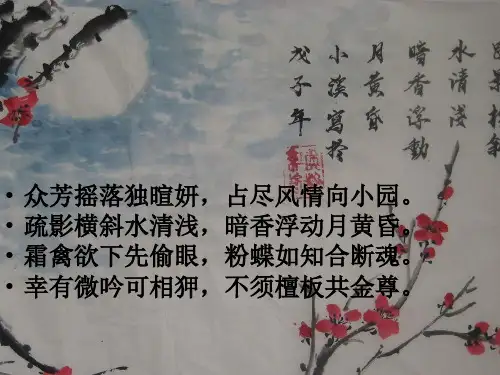 水清淺
暗香浮動
月黄昏
小溪寫於
戊子年
• 众芳摇落独暄妍，占尽风情向小园。
• 疏影横斜水清浅，暗香浮动月黄昏。
• 霜禽欲下先偷眼，粉蝶如知合断魂。
• 幸有微吟可相狎，不须檀板共金尊。